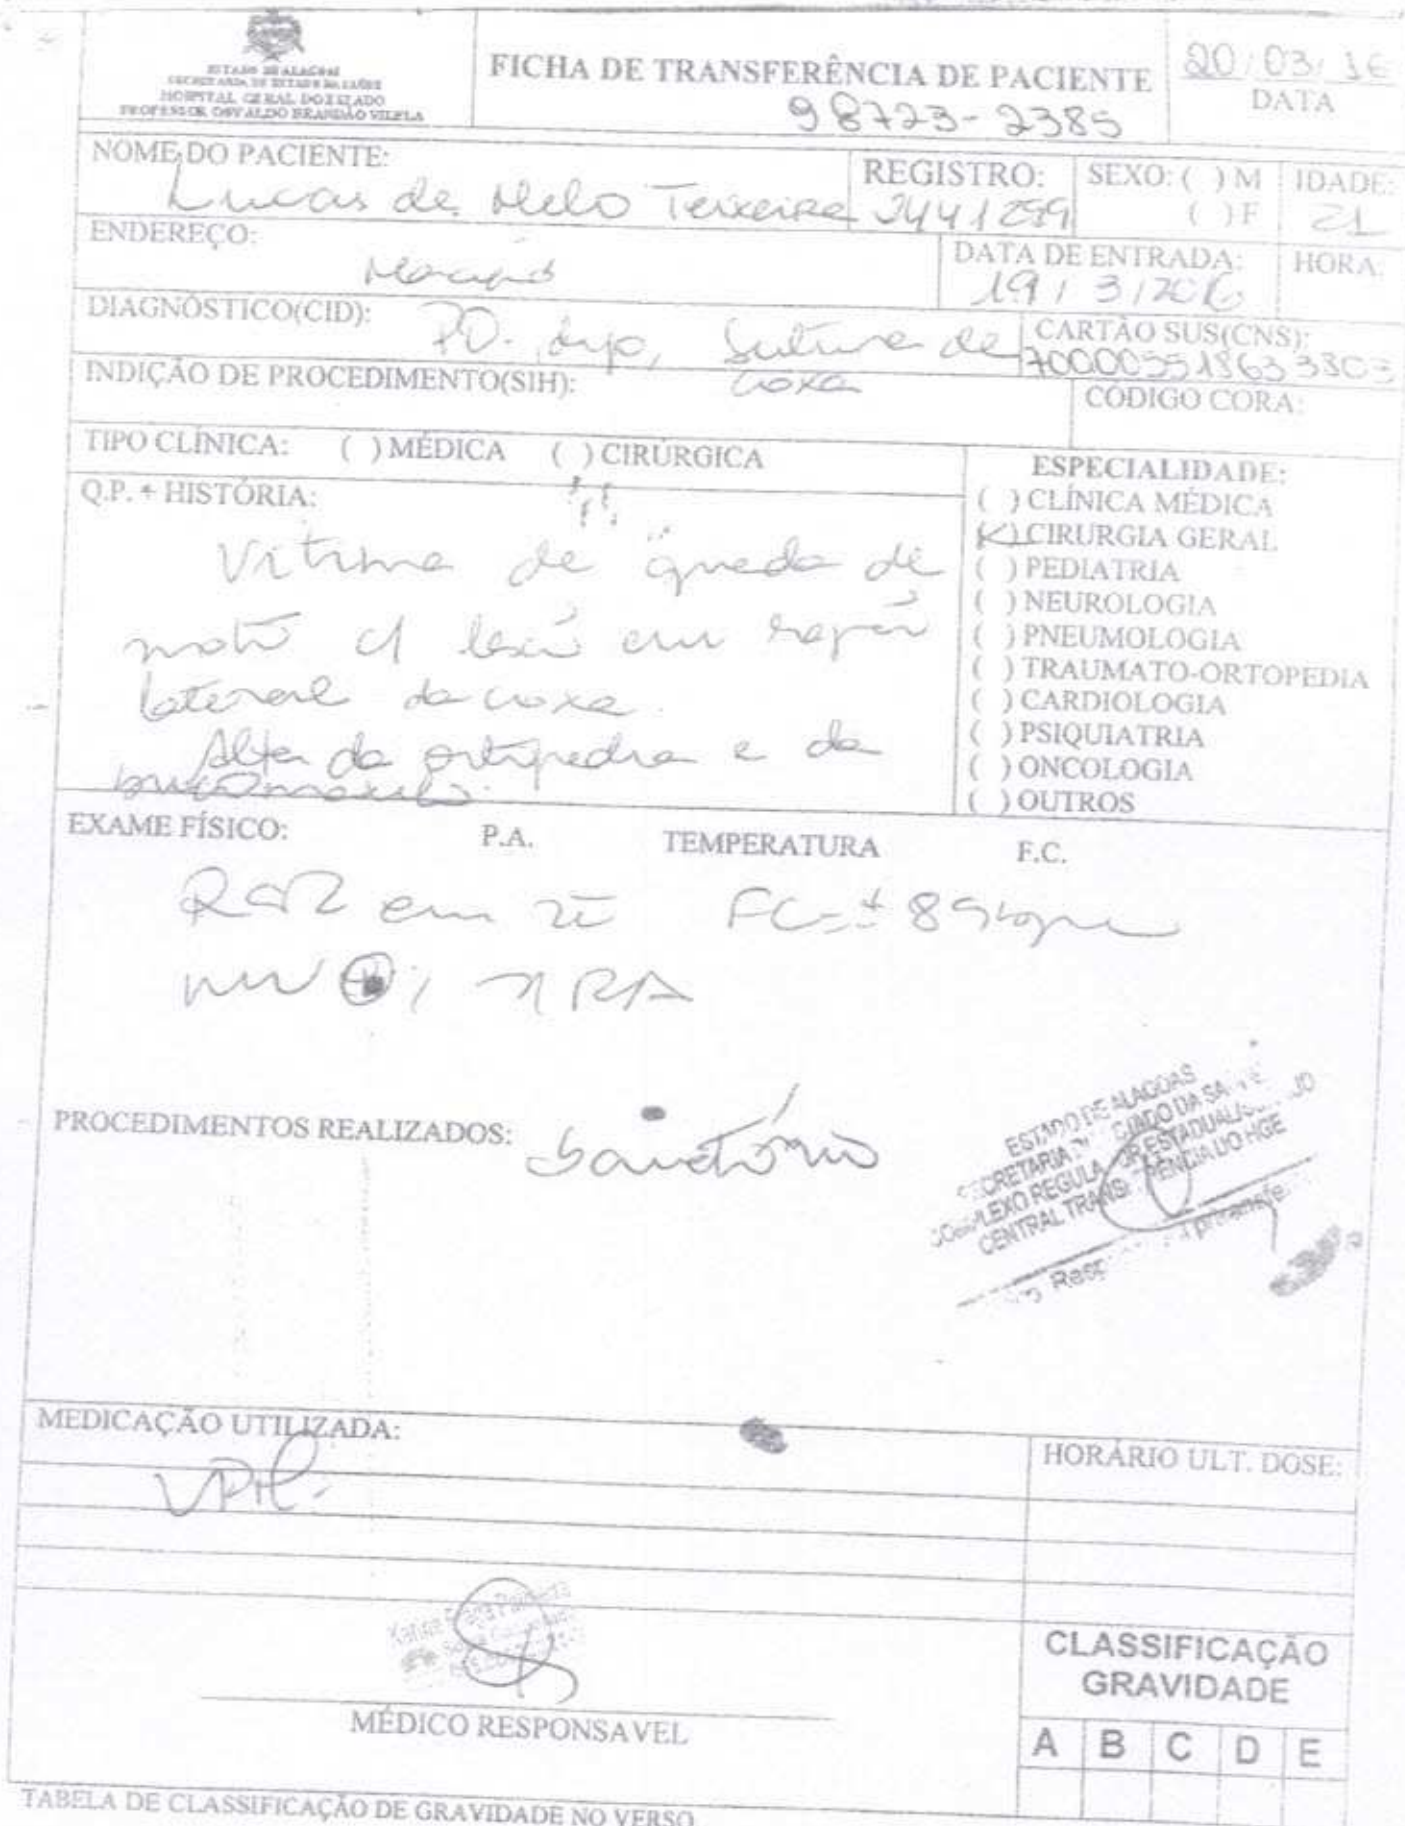 ESTADO DE ALAGOAS
SECRETARIA DE ESTADO DA SAÚDE
HOSPITAL GERAL DO ESTADO
PROFESSOR OSVALDO BRANDÃO VILELA
FICHA DE TRANSFERÊNCIA DE PACIENTE
98723-2385
20/03/16
DATA
NOME DO PACIENTE:
Lucas de Melo Teixeira
REGISTRO:
2441299
SEXO: ( ) M
( ) F
IDADE:
21
ENDEREÇO:
DATA DE ENTRADA:
19/3/2016
HORA:
DIAGNÓSTICO(CID):
PO. Sutura de
coxa
CARTÃO SUS(CNS):
INDIÇÃO DE PROCEDIMENTO(SIH):
CÓDIGO CORA:
TIPO CLÍNICA: ( ) MÉDICA ( ) CIRÚRGICA
Q.P. + HISTÓRIA:
Vitima de queda de
moto c/ lesão em região
lateral da coxa.
Alta da ortopedia e da
bucomaxilo.
ESPECIALIDADE:
( ) CLÍNICA MÉDICA
(X) CIRURGIA GERAL
( ) PEDIATRIA
( ) NEUROLOGIA
( ) PNEUMOLOGIA
( ) TRAUMATO-ORTOPEDIA
( ) CARDIOLOGIA
( ) PSIQUIATRIA
( ) ONCOLOGIA
( ) OUTROS
EXAME FÍSICO: P.A. TEMPERATURA F.C.
RCR em 2t FC=±89bpm
MV ⊕; RA
PROCEDIMENTOS REALIZADOS:
ESTADO DE ALAGOAS
CENTRAL DO HGE
MEDICAÇÃO UTILIZADA:
HORÁRIO ULT. DOSE:
VPM.
MÉDICO RESPONSAVEL
CLASSIFICAÇÃO
GRAVIDADE
A B C D E
TABELA DE CLASSIFICAÇÃO DE GRAVIDADE NO VERSO